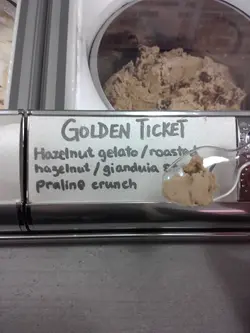 GOLDEN TICKET
Hazelnut gelato / roasted
hazelnut / gianduia &
praline crunch